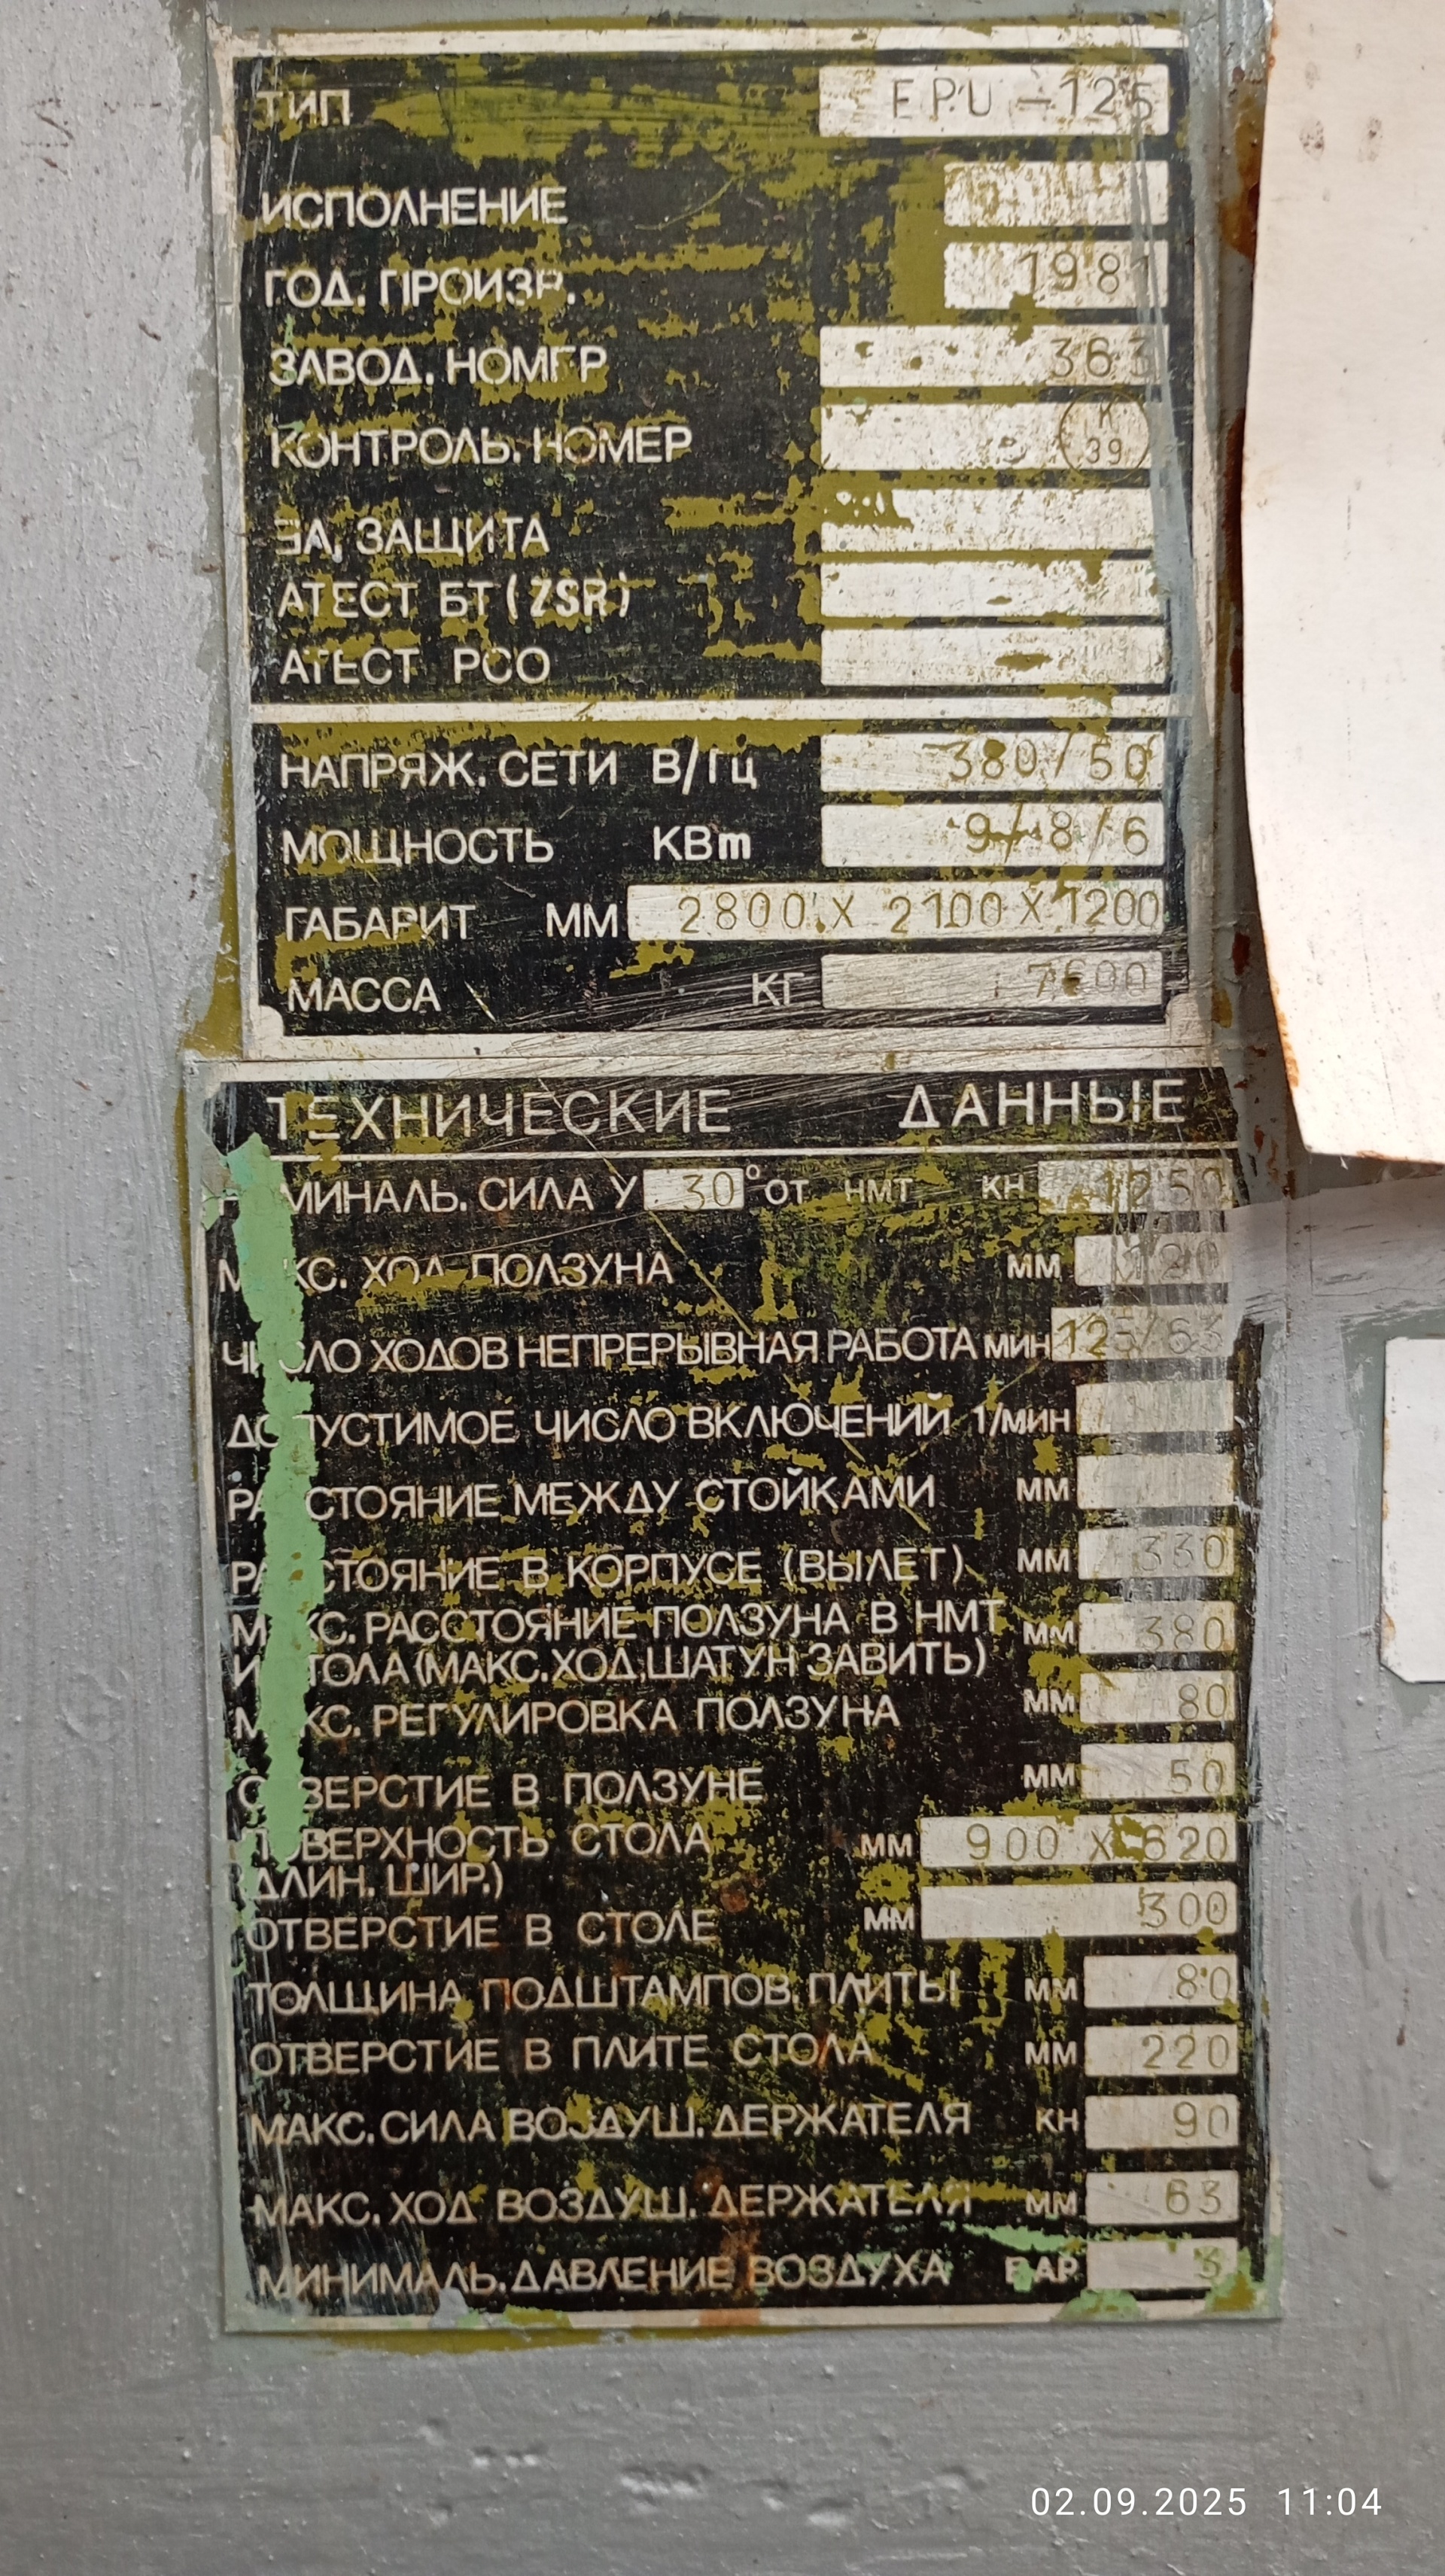 ТИП EPU-125
ИСПОЛНЕНИЕ
ГОД. ПРОИЗР. 1981
ЗАВОД. НОМЕР 363
КОНТРОЛЬ. НОМЕР К 39
ЭЛ, ЗАЩИТА
АТЕСТ БТ (ZSR)
АТЕСТ РСО
НАПРЯЖ. СЕТИ В/Гц 380/50
МОЩНОСТЬ КВm 9/8/6
ГАБАРИТ ММ 2800 X 2100 X 1200
МАССА КГ
ТЕХНИЧЕСКИЕ ДАННЫЕ
НОМИНАЛЬ. СИЛА У 30° ОТ НМТ КН 1250
МАКС. ХОД ПОЛЗУНА ММ 120
ЧИСЛО ХОДОВ НЕПРЕРЫВНАЯ РАБОТА МИН 125/63
ДОПУСТИМОЕ ЧИСЛО ВКЛЮЧЕНИЙ 1/МИН
РАССТОЯНИЕ МЕЖДУ СТОЙКАМИ ММ
РАССТОЯНИЕ В КОРПУСЕ (ВЫЛЕТ) ММ 330
МАКС. РАССТОЯНИЕ ПОЛЗУНА В НМТ ММ 380
И СТОЛА (МАКС. ХОД, ШАТУН ЗАВИТЬ)
МАКС. РЕГУЛИРОВКА ПОЛЗУНА ММ 80
ОТВЕРСТИЕ В ПОЛЗУНЕ ММ 50
ПОВЕРХНОСТЬ СТОЛА ММ 900 X 620
(ДЛИН. ШИР.)
ОТВЕРСТИЕ В СТОЛЕ ММ 300
ТОЛЩИНА ПОДШТАМПОВ. ПЛИТЫ ММ 80
ОТВЕРСТИЕ В ПЛИТЕ СТОЛА ММ 220
МАКС. СИЛА ВОЗДУШ. ДЕРЖАТЕЛЯ КН 90
МАКС. ХОД ВОЗДУШ. ДЕРЖАТЕЛЯ ММ 63
МИНИМАЛЬ. ДАВЛЕНИЕ ВОЗДУХА БАР 3
02.09.2025 11:04